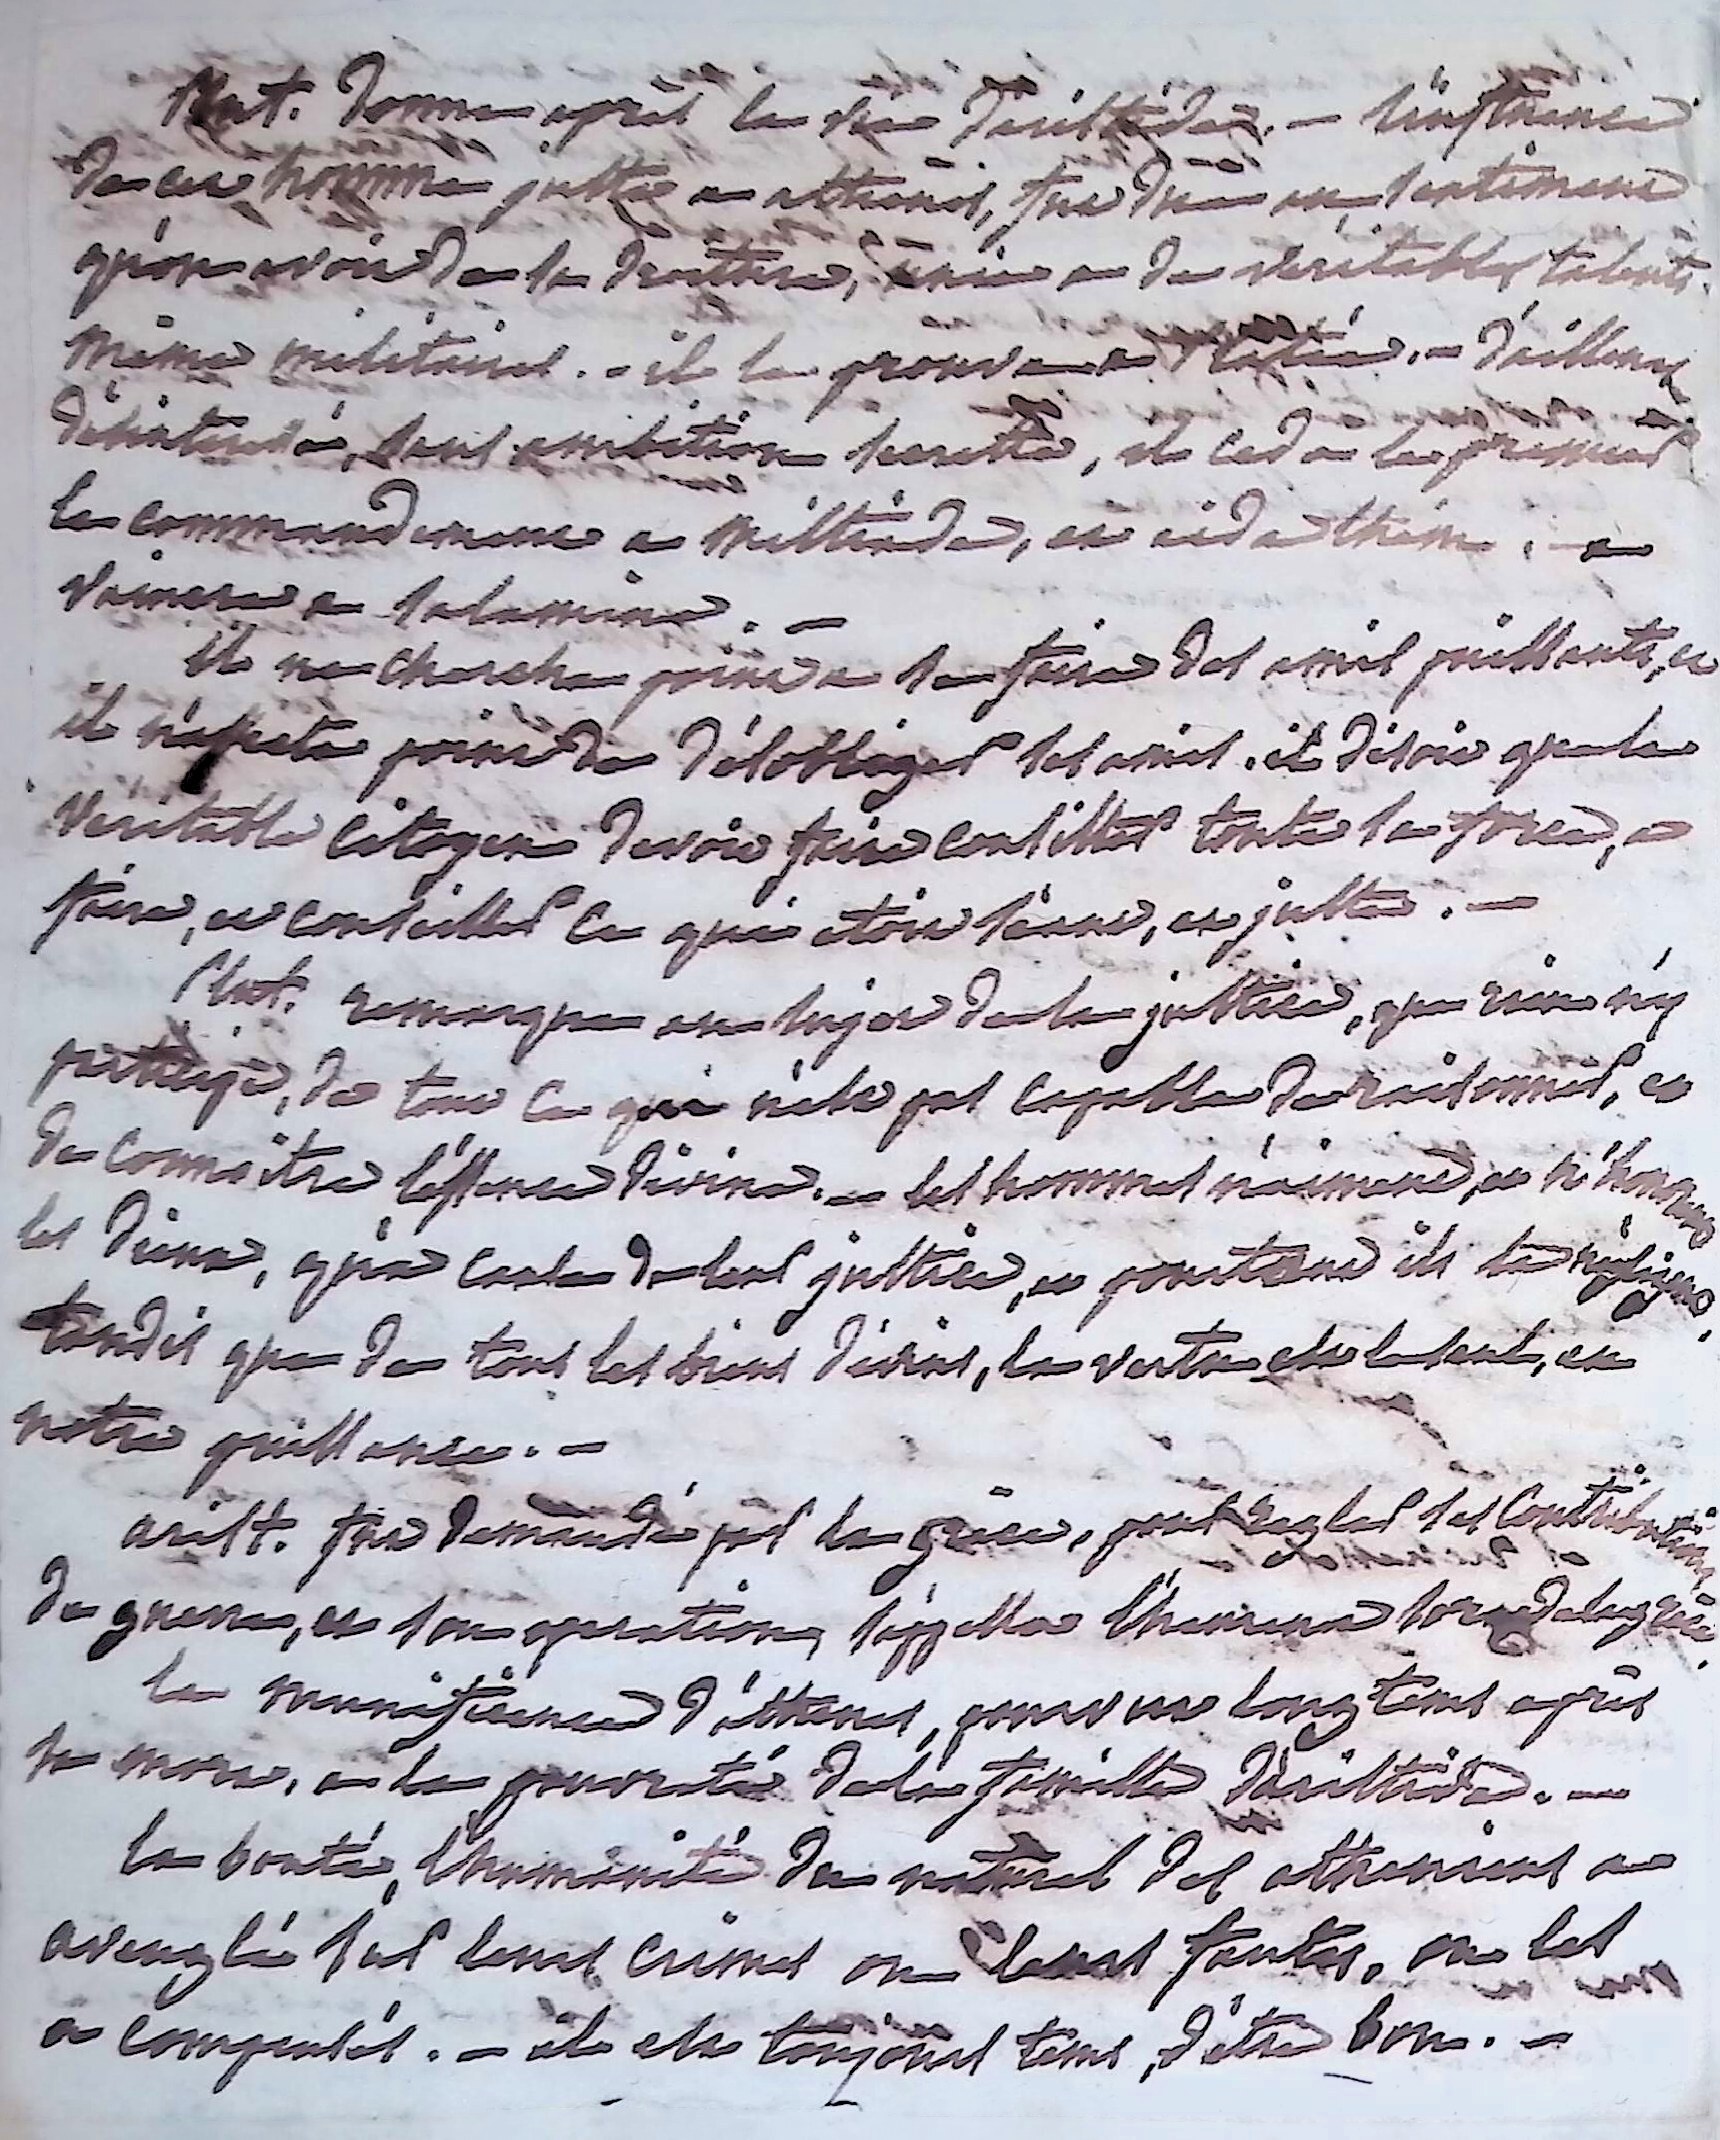 Plut. donne après la vie d'aristide. — l'influence
de cet homme juste a athènes, fut due au sentiment
qu'on avoit de sa droiture, unie a de véritables talents
même militaires. - il le prouva a Platée. - d'ailleurs
désintéressé, sans ambition secrette, il ceda le premier
le commandement a miltiade, et aida them. a
vaincre a salamine. —
il ne chercha point a se faire des amis puissants, et
il n'affecta point de désobliger ses amis. il disoit que le
véritable citoyen devoit faire consister toute sa force, a
faire, et conseiller ce qui etoit séant, et juste. —
Plut. remarque au sujet de la justice, que rien n'y
participe, de tout ce qui n'est pas capable de raisonner, et
de connoitre l'essence divine. — les hommes n'aiment, et n'honorent
les dieux, qu'a cause de leur justice, et pourtant ils la négligent.
tandis que de tous les biens divins, la vertu est le seul, en
notre puissance. —
arist. fut demandé par la grèce, pour regler ses contributions
de guerre, et son operation, s'appella l'heureux sort de la grèce.
la munificence d'athenes, pourvut longtems après
sa mort, a la pauvreté de la famille d'aristide. —
la bonté, l'humanité du naturel des atheniens a
aveuglé sur leurs crimes ou leurs fautes, ou les
a compensés. - il est toujours tems, d'être bon. —